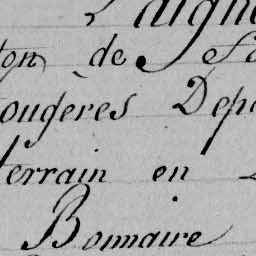 aigne
ton de Fo
ougères Depa
terrain en
Bonnaire